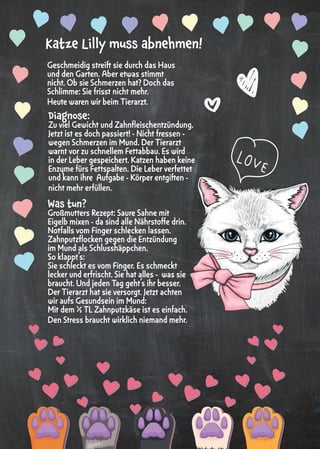 Katze Lilly muss abnehmen!
Geschmeidig streift sie durch das Haus
und den Garten. Aber etwas stimmt
nicht. Ob sie Schmerzen hat? Doch das
Schlimme: Sie frisst nicht mehr.
Heute waren wir beim Tierarzt.
Diagnose:
Zu viel Gewicht und Zahnfleischentzündung.
Jetzt ist es doch passiert! - Nicht fressen -
wegen Schmerzen im Mund. Der Tierarzt
warnt vor zu schnellem Fettabbau. Es wird
in der Leber gespeichert. Katzen haben keine
Enzyme fürs Fettspalten. Die Leber verfettet
und kann ihre Aufgabe - Körper entgiften -
nicht mehr erfüllen.
LOVE
Was tun?
Großmutters Rezept: Saure Sahne mit
Eigelb mixen - da sind alle Nährstoffe drin.
Notfalls vom Finger schlecken lassen.
Zahnputzflocken gegen die Entzündung
im Mund als Schlusshäppchen.
So klappt's:
Sie schleckt es vom Finger. Es schmeckt
lecker und erfrischt. Sie hat alles - was sie
braucht. Und jeden Tag geht's ihr besser.
Der Tierarzt hat sie versorgt. Jetzt achten
wir aufs Gesundsein im Mund:
Mit dem ½ TL Zahnputzkäse ist es einfach.
Den Stress braucht wirklich niemand mehr.